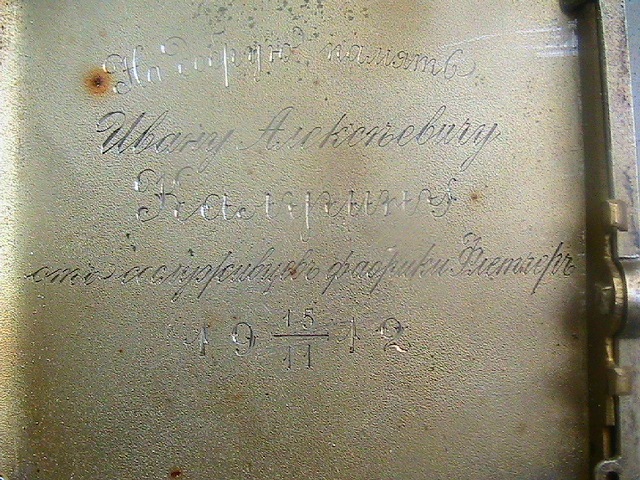 На добрую память
Ивану Алексѣевичу
отъ сослуживцевъ фабрики Флетчеръ
19 15/11 12